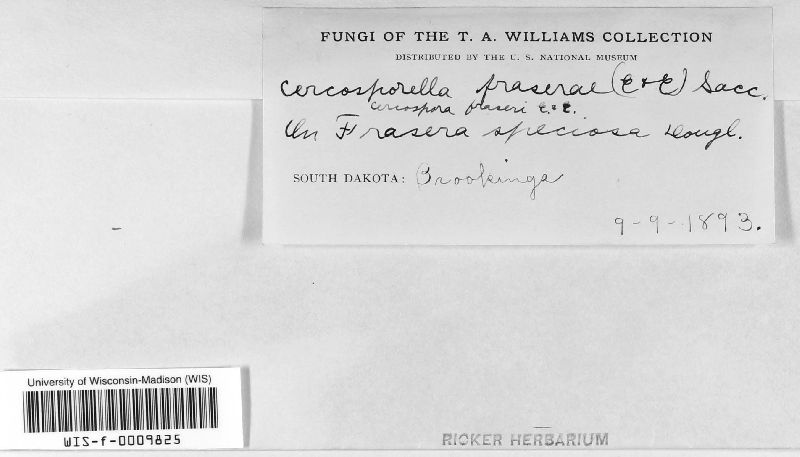 FUNGI OF THE T. A. WILLIAMS COLLECTION
DISTRIBUTED BY THE U. S. NATIONAL MUSEUM
Cercosporella fraserae (E & E) Sacc.
Cercospora fraseri E. & E.
On Frasera speciosa Dougl.
SOUTH DAKOTA: Brookings
9-9-1893.
University of Wisconsin-Madison (WIS)
WIS-f-0009825
RICKER HERBARIUM